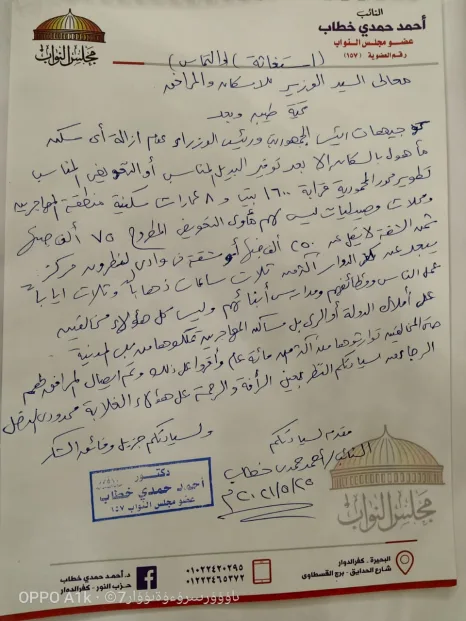 النائب
أحمد حمدي خطاب
عضو مجلس النواب
رقم العضوية (١٥٧)
مجلس النواب
(استغاثة والتماس)
معالى السيد الوزير للاسكان والمرافق
تحية طيبة وبعد
توجيهات الرئيس الجمهورية ورئيس الوزراء عدم ازالة أى سكن
مأهول بالسكان الا بعد توفير البديل المناسب أو التعويض المناسب
تطوير محور المحمودية قرابة ١٦٠٠ بيت و ٨ عمارات سكنية منطقة المهاجرين
ومحلات وصيدليات ليس لهم مأوى التعويض المطروح ٧٥ ألف جنيه
ثمن الشقة لا يقل عن ٢٥٠ ألف جنيه أو شقة فى وادى النطرون مركز
يبعد عن كفر الدوار أكثر من ثلاث ساعات ذهابا وثلاث ايابا
عمل الناس ووظائفهم ومدارس أبنائهم وليس كل هؤلاء مخالفين
على أملاك الدولة أو الرى بل مساكن المهاجرين تملكوها من مجلس المدينة
حتى المخالفين توارثوها منذ أكثر من مائة عام وأقروا على ذلك وتم ايصال المرافق لهم
الرجا من سيادتكم النظر بعين الرأفة والرحمة على هؤلاء الغلابة محدودى الدخل
ولسيادتكم جزيل وفائق الشكر
مقدم لسيادتكم
النائب / أحمد حمدى خطاب
٢٠٢١/٥/٢٥م
دكتور
أحمد حمدي خطاب
عضو مجلس النواب ١٥٧
مجلس النواب
د. أحمد حمدي خطاب
حزب النور - كفرالدوار
٠١٠٢٢٤٢٠٢٩٥
٠١٢٢٢٤٦٥٢٧٢
البحيرة - كفرالدوار
شارع الحدايق - برج القسطاوى
OPPO A1k